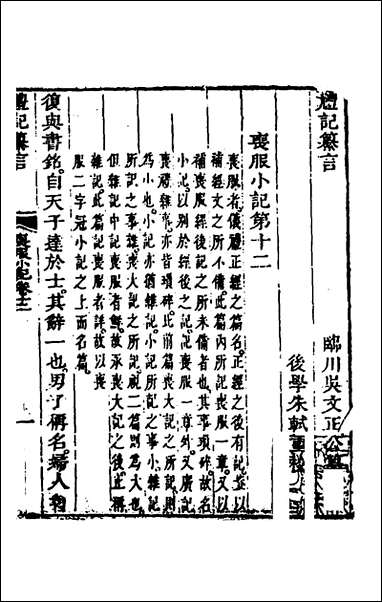 禮記纂言
臨川吳文正公
後學朱軾
喪服小記第十二
喪服者儀禮正經之篇名正經之後有記蓋以
補經文之所不備此篇內所記喪服一章又以
補喪服經後記之所未備者也其事瑣碎故名
小記以別於經後之記喪服一章外又廣記
喪禮雜事亦皆瑣碎比前篇喪大記之所記則
為小也小記亦猶雜記小記所記之事小雜記
所記之事雜喪大記之所記視二篇則為大也
但雜記中記喪服者無故承喪大記之後正稱
雜記此篇記喪服者詳故以喪
服二字冠小記之上而名篇
復與書銘自天子達於士其辭一也男子稱名婦人
喪服小記卷十二
一
禮記纂言